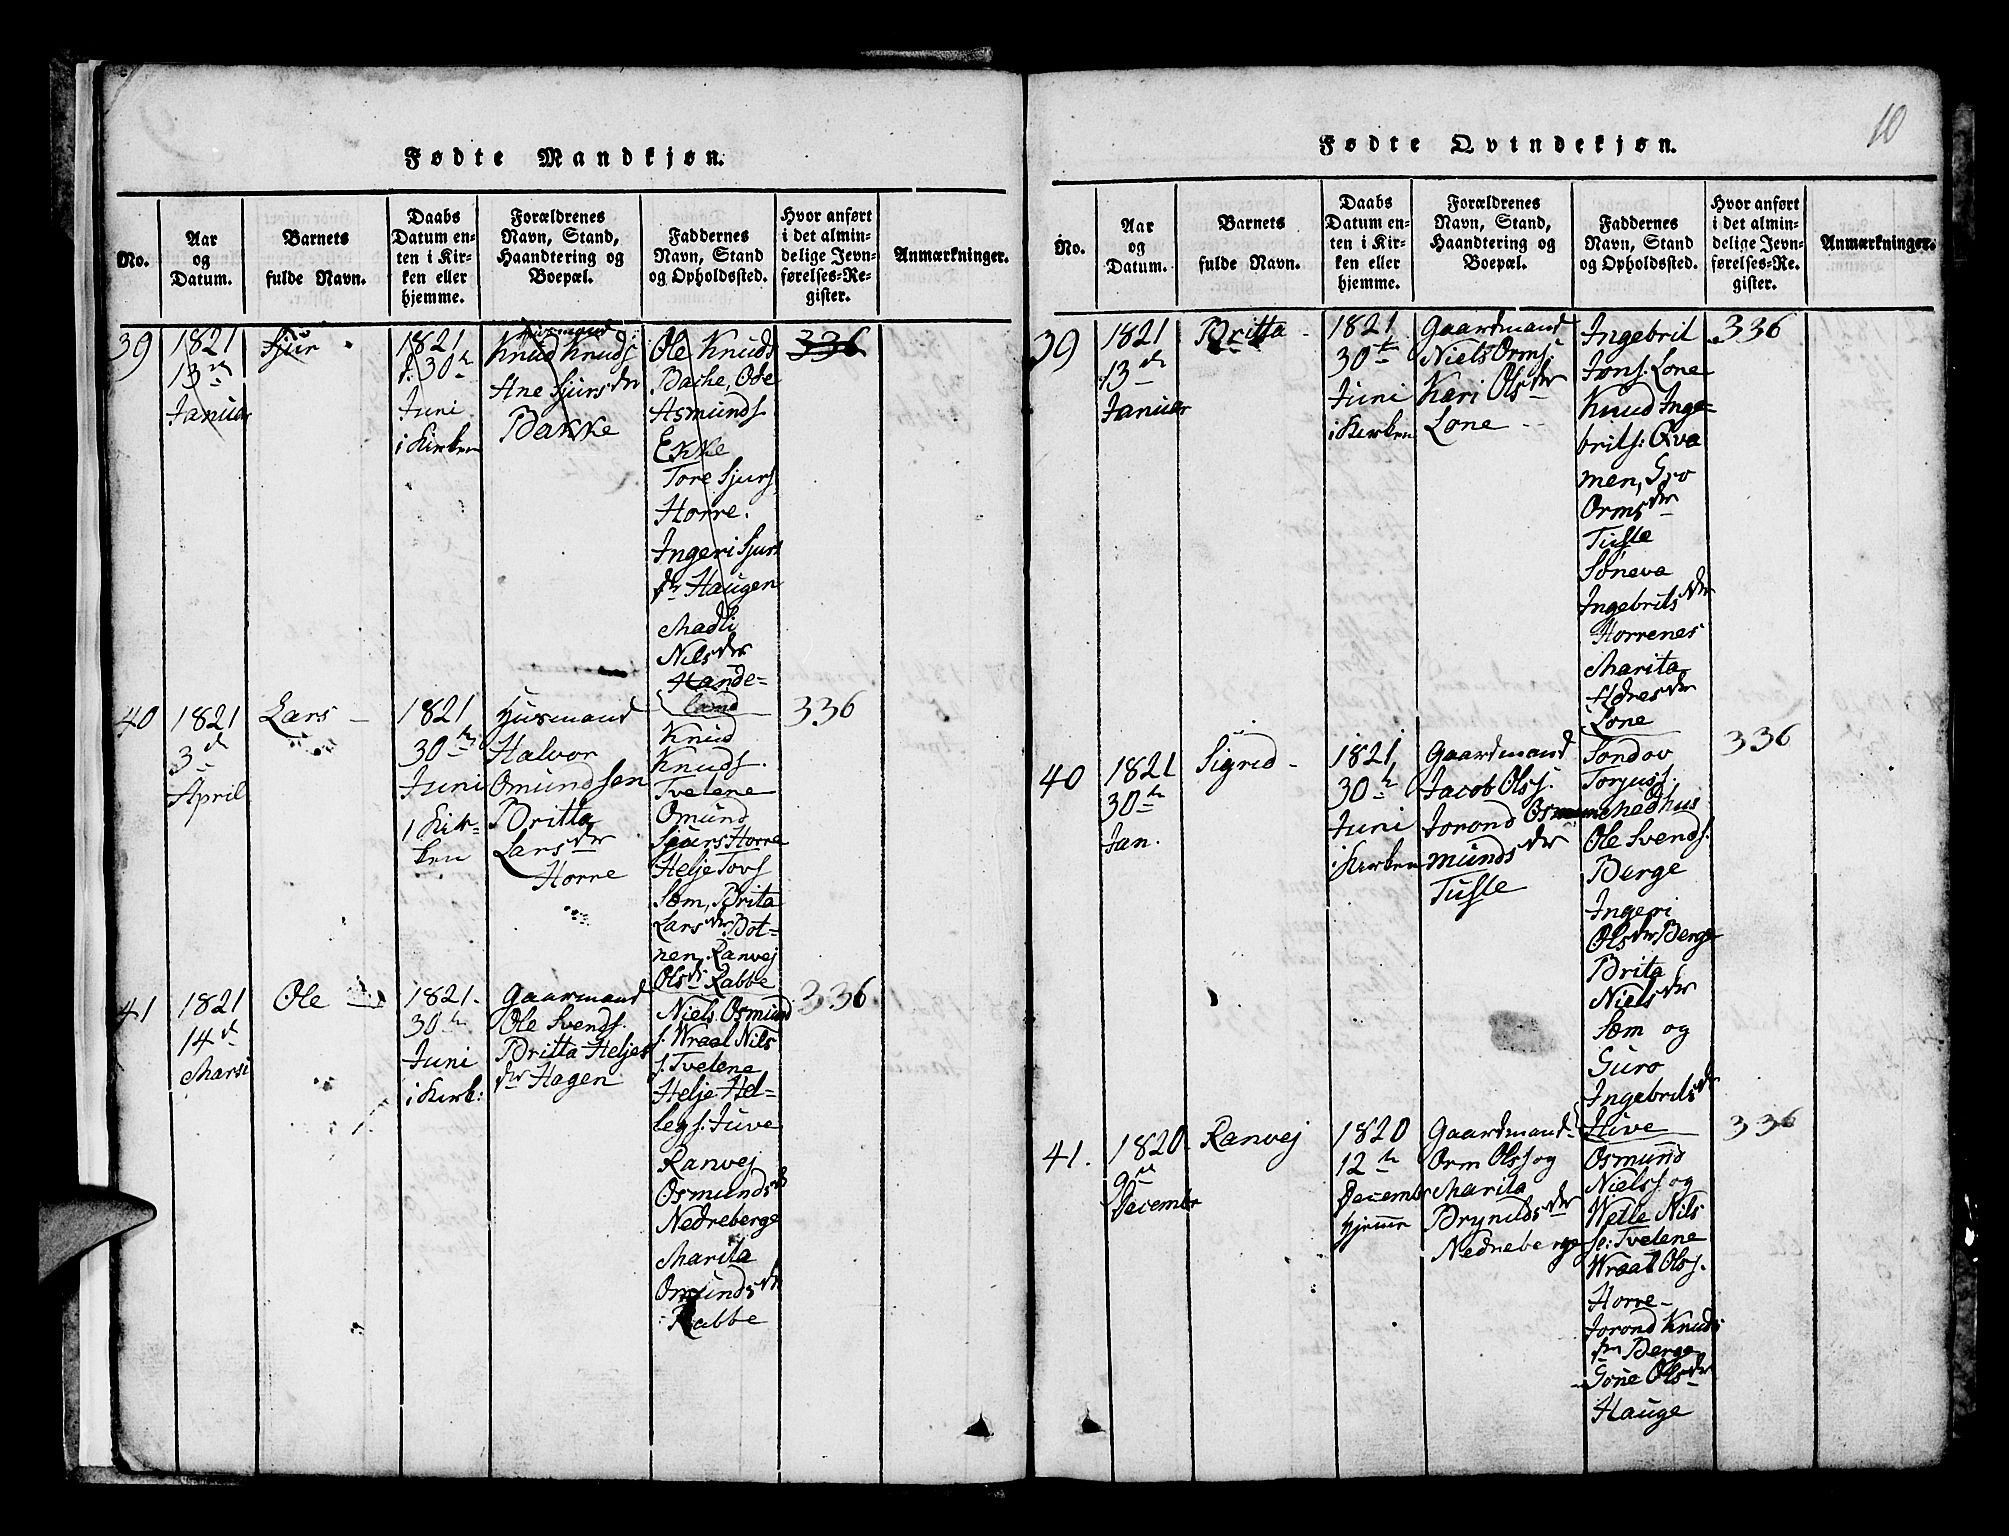 10
Fødte Mandkjøn.
No.
Aar
og
Datum.
Barnets
fulde Navn.
Daabs
Datum en-
ten i Kir-
ken eller
hjemme.
Forældrenes
Navn, Stand,
Haandtering og
Boepæl.
Faddernes
Navn, Stand
og Opholdssted.
Hvor anført
i det almin-
delige Jevn-
førelses-Re-
gister.
Anmærkninger.
39
1821
13
Januar
Sjur
1821
d. 30th
Juni
i Kirken
Husmand
Knud Knuds
Ane Sjursdr
Bakke
Ole Knuds
Bache, Ode
Asmunds.
Ekke
Tore Sjurs
Horre.
Ingeri Sjurs
dr Haugen
Madli
Nilsdr
Hande-
land
336
40
1821
3d
April
Lars -
1821
30th
Juni
i Kir-
ken
Husmand
Halvor
Omundsen
Britta
Larsdr
Horre
Knud
Knuds.
Tvetene
Omund
Sjurs Horre
Helje Tovs
Sæm, Brita
Larsdr Bot-
nen, Ranvej
Olsdr Rabbe
336
41
1821
14d
Marsi
Ole
1821.
30th
Juni
i Kirk:
Gaarmand
Ole Svends.
Britta Heljes
dr Hagen
Niels Osmund
s. Wraal Nils
s. Tvetene
Helje Hel-
legs. Juve
Ranvej
Osmundsd
Nedreberge
Marita
Omundsdr
Rabbe
336
Fødte Qvindekjøn.
No.
Aar
og
Datum.
Barnets
fulde Navn.
Daabs
Datum en-
ten i Kir-
ken eller
hjemme.
Forældrenes
Navn, Stand,
Haandtering og
Boepæl.
Faddernes
Navn, Stand
og Opholdssted.
Hvor anført
i det almin-
delige Jevn-
førelses-Re-
gister.
Anmærkninger.
39
1821
13d
Januar
Britta -
1821
30th
Juni
i Kirken
Gaardmand
Niels Orms:
Kari Olsdr
Lone -
Ingebril
Jons. Lone
Knud Inge-
brits: Qva
men, Gro
Ormsdr
Tufte
Søneva
Ingebritsdr
Horrenes
Marita
Lone
336
40
1821
30th
Jan.
Sigrid -
1821
30th
Juni
i Kirken
Gaardmand
Jacob Olss.
Jorond Os
mundsdr
Tufte
Sondov
Torguss.
Medhus
Ole Svends.
Berge
Ingeri
Olsdr Berge
Brita
Nielsdr
Sæm og
Guro
Ingebritsdr
Juve
336
41.
1820.
9d
Decembr
Ranvej
1820
12th
Decembr
Hjemme
Gaardmand
Orm Olss og
Marita
Brynildsdr
Nedreberge
Osmund
Nielss og
Wetle Nils
s: Tvetene
Wraal Olss.
Horre -
Jorond Knuds
dr Berge
Gone Olsdr
Hauge
336